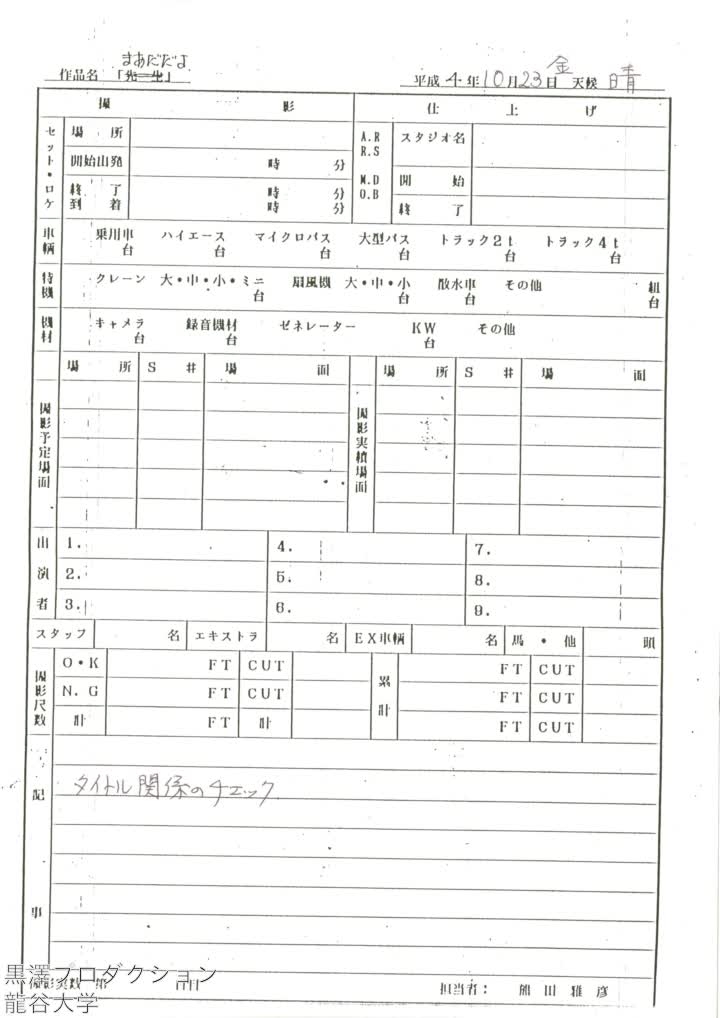 まあだだよ
作品名 「先生」 平成 4 年 10 月 23 日 金 天候 晴
撮 影 仕 上 げ
セット・ロケ 場 所 A.R スタジオ名
R.S
開始出発 時 分
M.D 開 始
終 了 時 分 O.B
到 着 時 分 終 了
車輌 乗用車 ハイエース マイクロバス 大型バス トラック2t トラック4t
台 台 台 台 台 台
特機 クレーン 大・中・小・ミニ 扇風機 大・中・小 散水車 その他 組
台 台 台 台
機材 キャメラ 録音機材 ゼネレーター KW その他
台 台 台
撮影予定場面 場 所 S # 場 面 撮影実績場面 場 所 S # 場 面
出演者 1. 4. 7.
2. 5. 8.
3. 6. 9.
スタッフ 名 エキストラ 名 EX車輌 名 馬・他 頭
撮影尺数 O・K FT CUT 累計 FT CUT
N.G FT CUT FT CUT
計 FT 計 FT CUT
記事
タイトル関係のチェック
撮影実数 第 日目 担当者: 熊田雅彦
黒澤プロダクション
龍谷大学